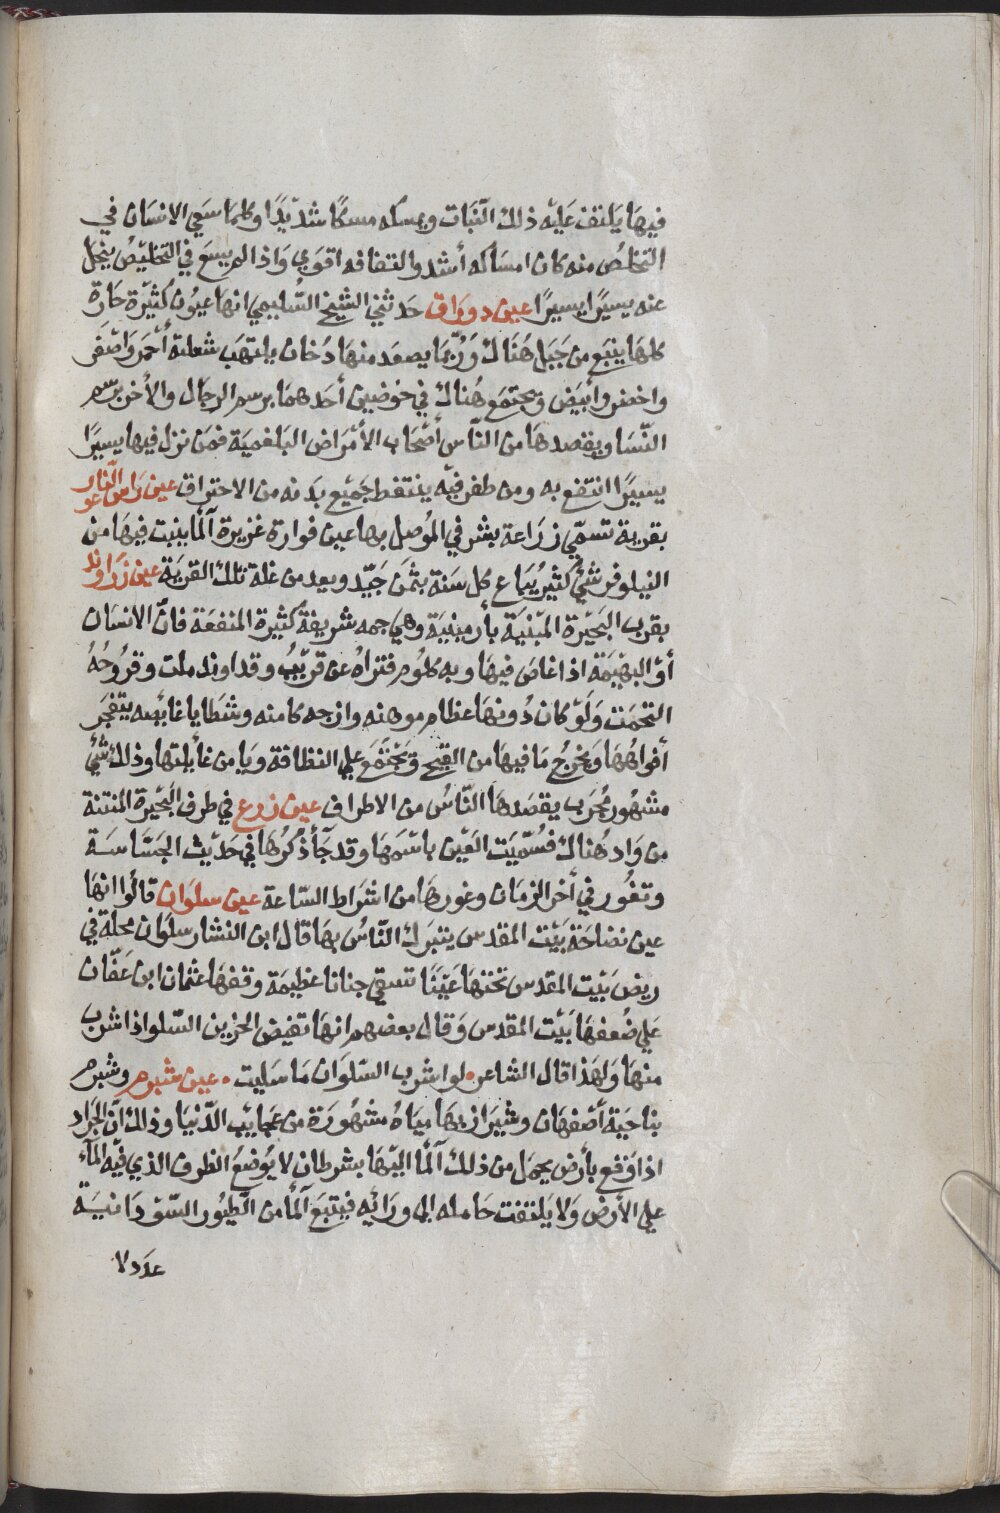 فيها يلتف عليه ذلك النبات ويمسكه مسكا شديدا وكلما سعي الانسان في
التخلص منه كان امساكه أشد والتفافه اقوي واذا لم يسع في التخليص ينحل
عنه يسيرا يسيرا عين دوراق حدثني الشيخ السليمي انها عيون كثيرة حارة
كلها ينبع من جبل هناك وربما يصعد منها دخان يلتهب شعلته أحمر واصفر
واخضر وأبيض ويجتمع هناك في حوضين أحدهما برسم الرجال والأخر برسم
النسا ويقصدها من الناس أصحاب الأمراض البلغمية فمن نزل فيها يسيرا
يسيرا انتفع به ومن طفر فيه ينتفط جميع بدنه من الاحتراق عين راس الناعور
بقرية تسمي زراعة بشرفي الموصل بها عين فوارة غزيرة المأ ينبت فيها من
النيلوفر شئ كثير يباع كل سنة بثمن جيد ويعد من غلة تلك القرية عين زراوند
بقرب البحيرة المبنية بأرمينية وهي جمه شريفة كثيرة المنفعة فان الانسان
أو البهيمة اذا غاص فيها وبه كلوم فتراه عن قريب وقد اوندملت وقروحه
التحمت ولو كان دونها عظام موهنه وازجه كامنه وشظايا غايصه يتفجر
أفواهها ويخرج ما فيها من القيح ويجتمع علي النظافة ويامن غأيلتها وذلك شئ
مشهور مجرب يقصدها الناس من الاطراف عين زرع في طرف البحيرة المنتنة
من واد هناك فسميت العين باسمها وقد جأ ذكرها في حديث الجساسة
وتغور في أخر الزمان وغورها من اشراط الساعة عين سلوان قالوا انها
عين نضاخة بيت المقدس يتبرك الناس بها قال ابن النشار سلوان محلة في
ربض بيت المقدس تحتها عينا تسقي جنانا عظيمة وقفها عثمان ابن عفان
علي ضعفها بيت المقدس وقال بعضهم انها تفيض الحزين السلو اذا شرب
منها ولهذا قال الشاعر • لو اشرب السلوان ما سليت • عين شبرم وشبرم
بناحية أصفهان وشيراز بها مياه مشهورة من عجايب الدنيا وذلك ان الجراد
اذا وقع بأرض يحمل من ذلك المأ اليها بشرطان لا يوضع الظرف الذي فيه المآء
علي الأرض ولا يلتفت حامله الي ورائه فيتبع المأ من الطيور السودانية
عدد ٧